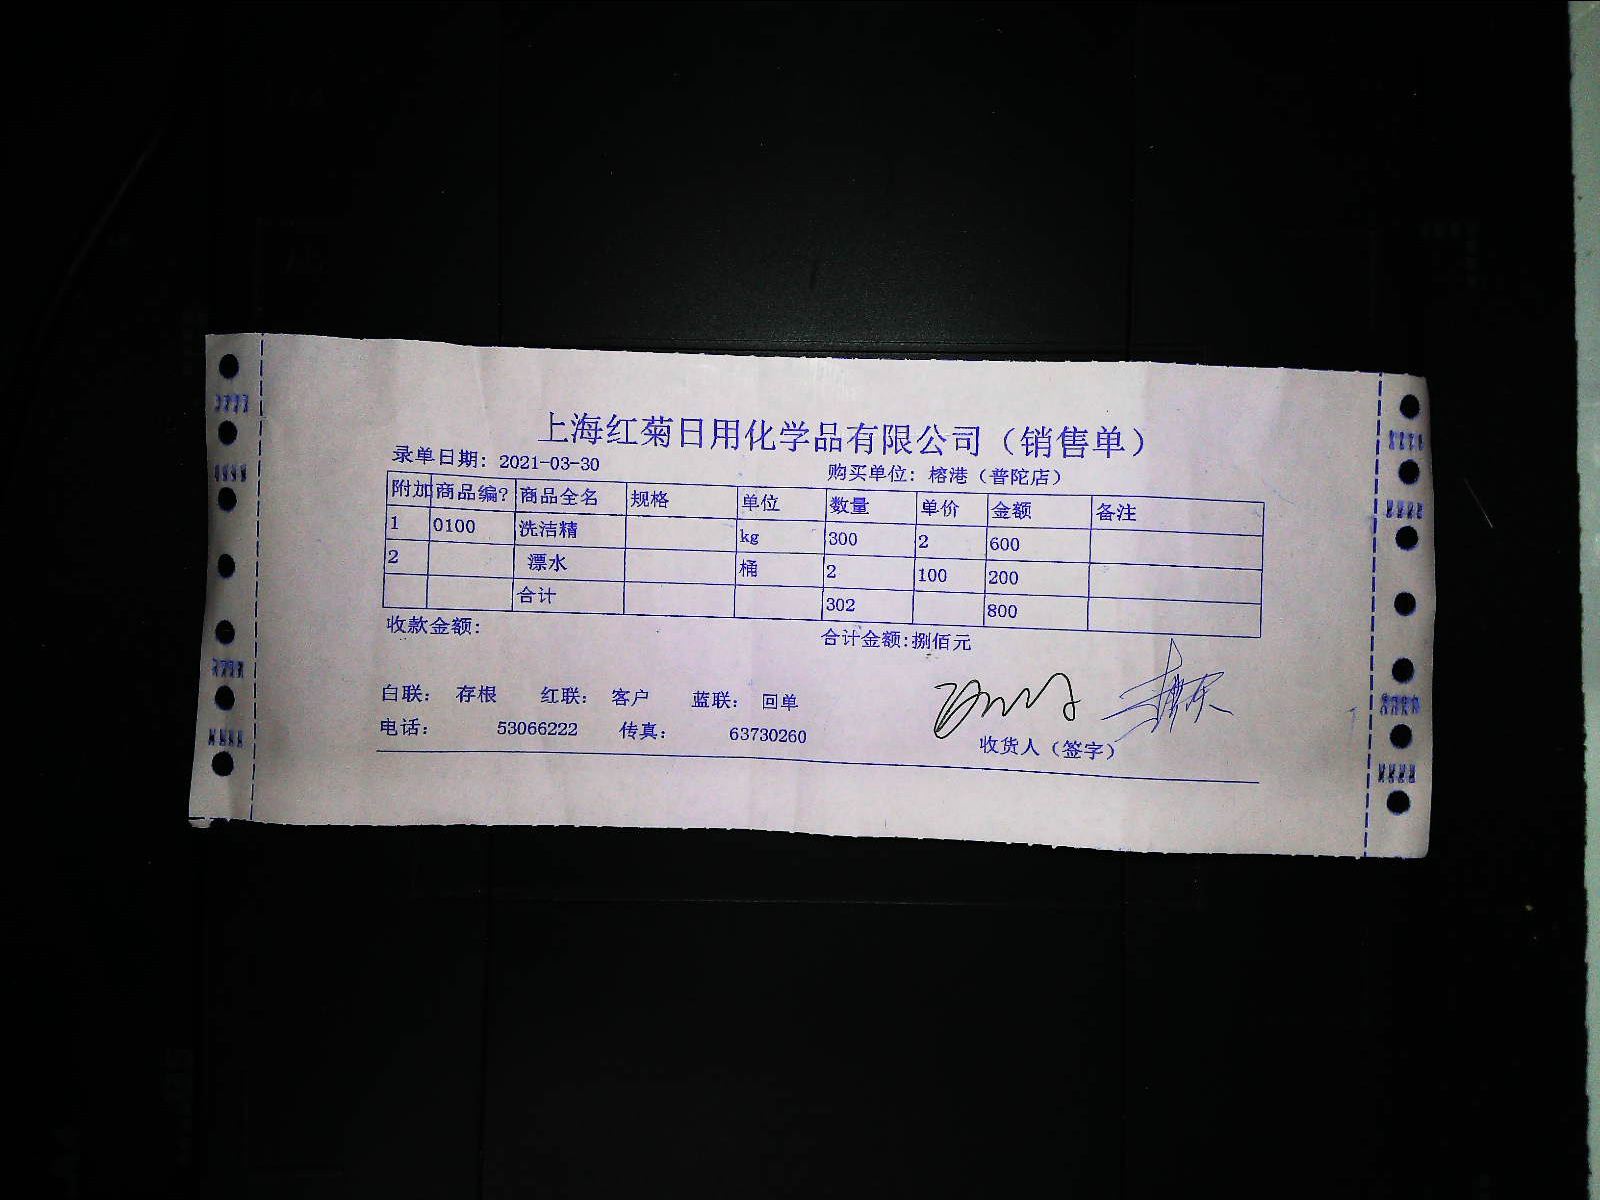 上海红菊日用化学品有限公司（销售单）
录单日期: 2021-03-30 购买单位: 榕港（普陀店）
附加 商品编? 商品全名 规格 单位 数量 单价 金额 备注
1 0100 洗洁精 kg 300 2 600
2 漂水 桶 2 100 200
合计 302 800
收款金额: 合计金额:捌佰元
白联: 存根 红联: 客户 蓝联: 回单
电话: 53066222 传真: 63730260
收货人（签字）